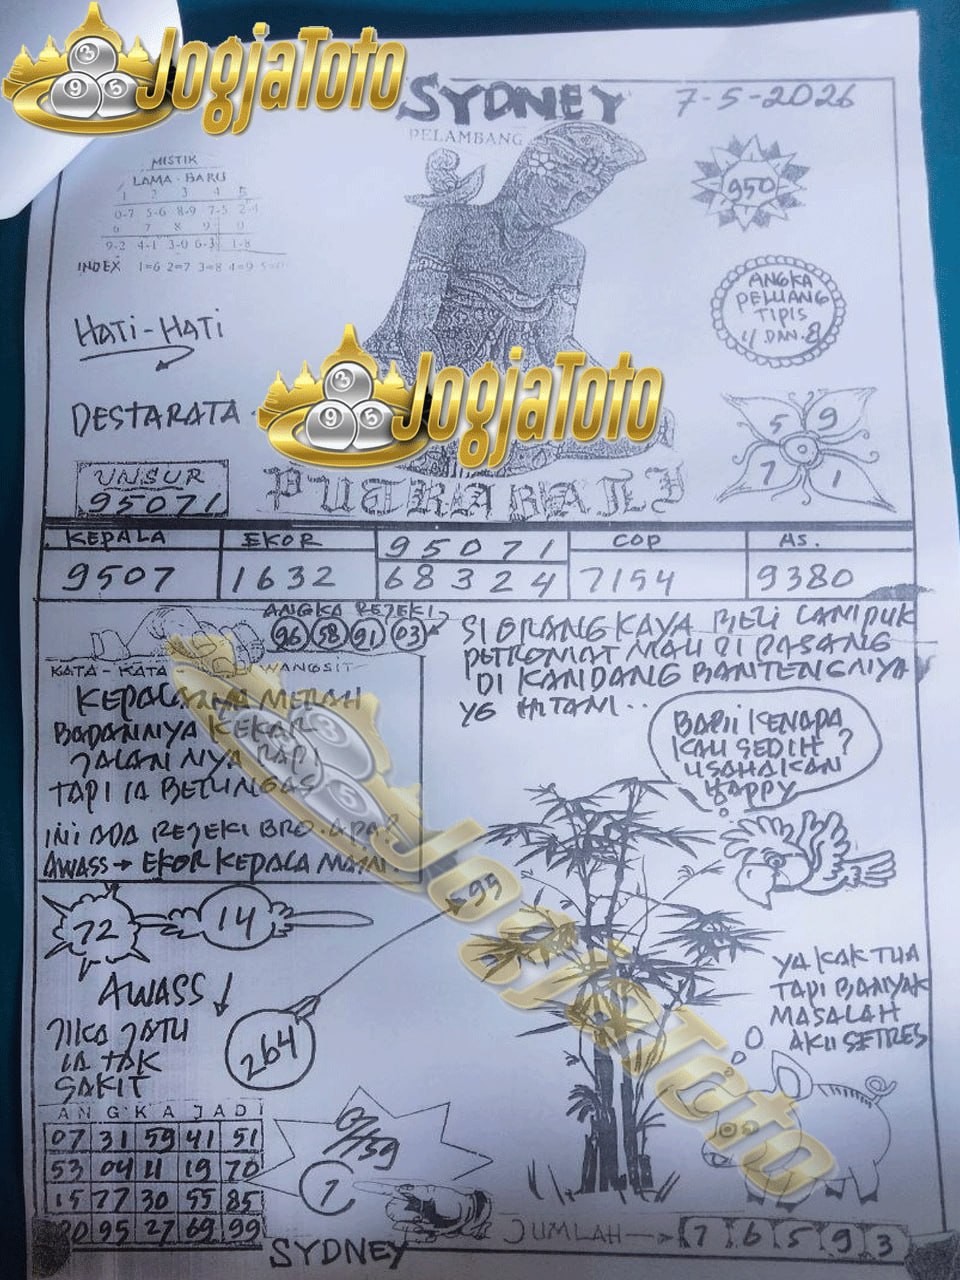 JogjaToto
SYDNEY
7-5-2026
PELAMBANG
MISTIK
LAMA - BARU
1 2 3 4 5
0-7 5-6 8-9 7-5 2-4
6 7 8 9 0
9-2 4-1 3-0 6-3 1-8
INDEX 1=6 2=7 3=8 4=9 5=0
950
ANGKA
PELUANG
TIPIS
4 DAN 8
HATI-HATI
JogjaToto
DESTARATA
5 9
7 1
UNSUR
95071
PUTRA BALI
KEPALA EKOR 95071 COP AS.
9507 1632 68324 7154 9380
ANGKA REJEKI
96 58 91 03
KATA - KATA WANGSIT
KEPALANYA MERAH
BADANNYA KEKAR
JALANNYA RAPI
TAPI IA BERINGAS
INI ADA REJEKI BRO. APA?
AWASS → EKOR KEPALA MAIN.
SI ORANG KAYA BELI LAMPUK
PETROMAT MAU DI PASANG
DI KANDANG BANTENGNYA
YG HITAM..
BABII KENAPA
KAU SEDIH ?
USAHAKAN
HAPPY
JogjaToto
72 14
95
AWASS ↓
264
JIKA JATU
IA TAK
SAKIT
YA KAK TUA
TAPI BANYAK
MASALAH
AKU SETRES
ANGKA JADI
07 31 59 41 51
53 04 11 19 70
15 77 30 55 85
95 27 69 99
7
SYDNEY
JUMLAH → 7 6 5 9 3